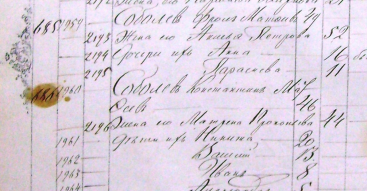 685 1959 Соболев Фролъ Матвѣев 49
2193 Жена его Акилина Петрова 52
2194 Дочери ихъ Анна 16
2195 Параскева 11
686 1960 Соболев Константинъ
46
2196 Жена его Матрена Прокопьева 44
1961 Дѣти ихъ Никита 20
1962 Василій 15
1963 Иванъ 8
1964